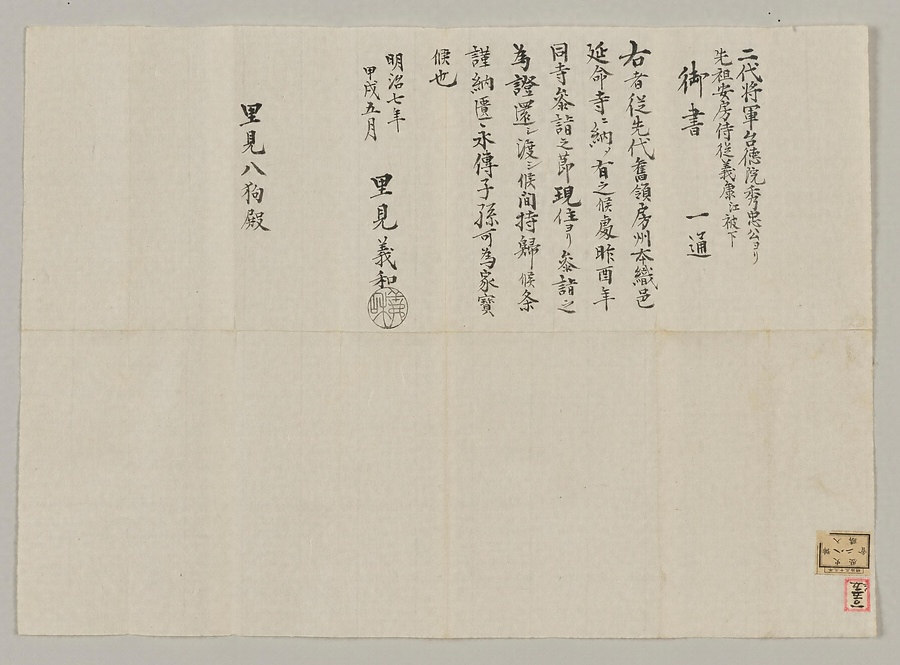 二代将軍台徳院秀忠公ヨリ
先祖安房侍従義康江被下
御書 一通
右者従先代舊領房州本織邑
延命寺ニ納メ有之候處昨酉年
同寺参詣之節現住ヨリ参詣之
為證還シ渡シ候間持歸候条
謹納匱永傳子孫可為家寶
候也
明治七年
甲戌五月
里見義和
義和
里見八狗殿